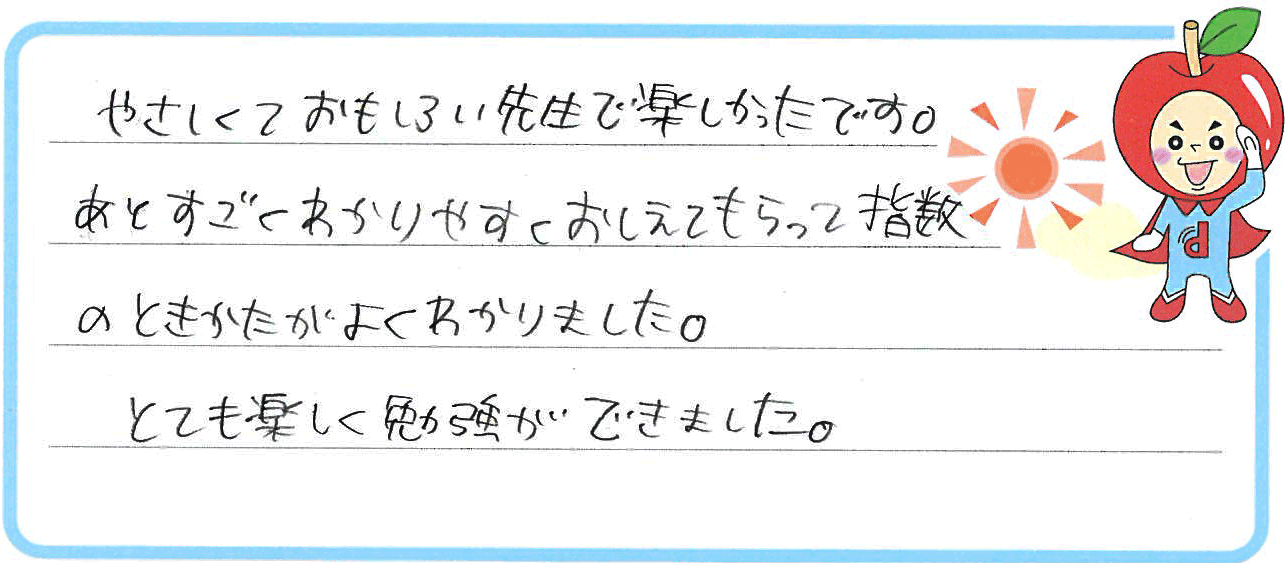 やさしくておもしろい先生で楽しかったです。
あとすごくわかりやすくおしえてもらって指数
のときかたがよくわかりました。
とても楽しく勉強ができました。
P